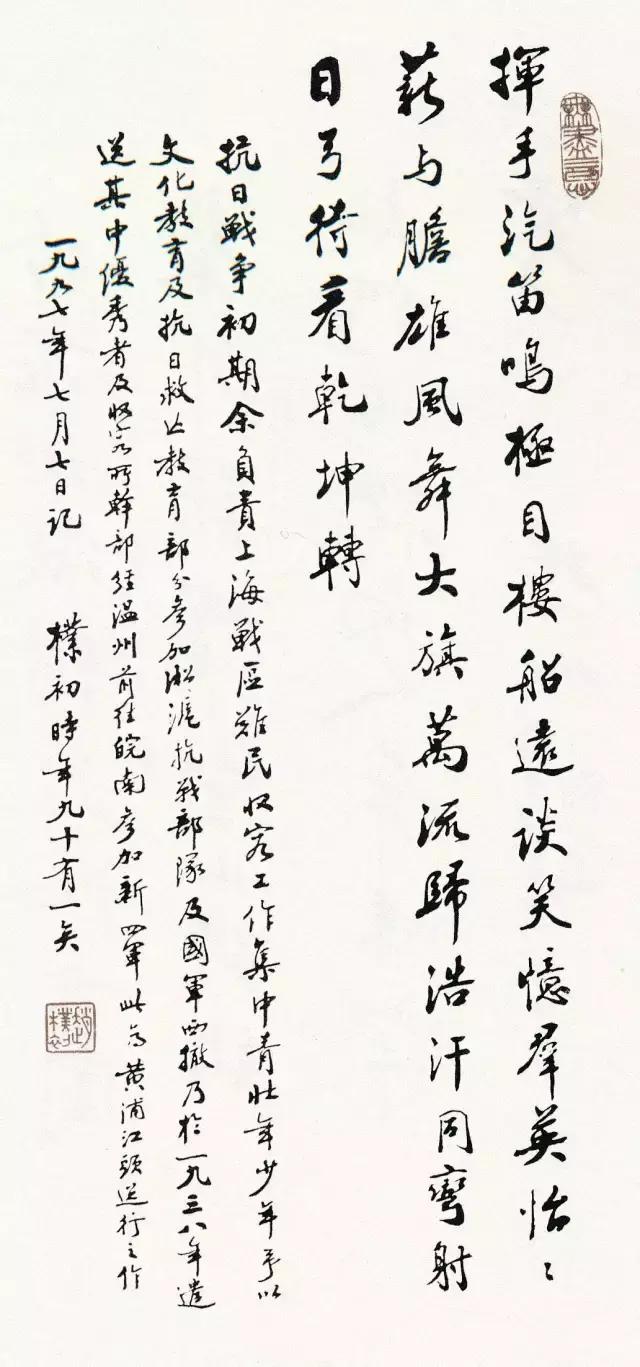 揮手汽笛鳴極目樓船遠談笑憶羣英怡〻
薪与膽雄風舞大旗萬流歸浩汗同彎射
日弓待看乾坤轉
抗日戰争初期余負責上海戰区難民收容工作集中青壯年少年予以
文化教育及抗日救亡教育部分參加淞滬抗戰部隊及國軍西撤乃於一九三八年遣
送其中優秀者及收容所幹部經温州前往皖南參加新四軍此為黄浦江頭送行之作
一九九七年七月七日記 樸初時年九十有一矣
趙樸初